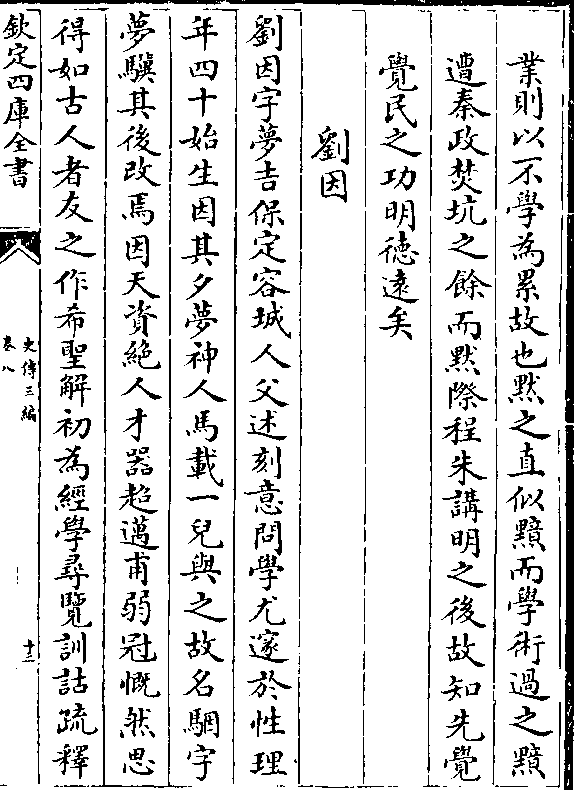 業則以不學為累故也黙之直似黯而學術過之黯
遭秦政焚坑之餘而黙際程朱講明之後故知先覺
覺民之功明徳逺矣
劉因
劉因字夢吉保定容城人父述刻意問學尤邃於性理
年四十始生因其夕夢神人馬載一兒與之故名駰字
夢驥其後改焉因天資絶人才器超邁甫弱冠慨然思
得如古人者友之作希聖解初為經學尋覽訓詁疏釋
欽定四庫全書
史傳三編
卷八
十三